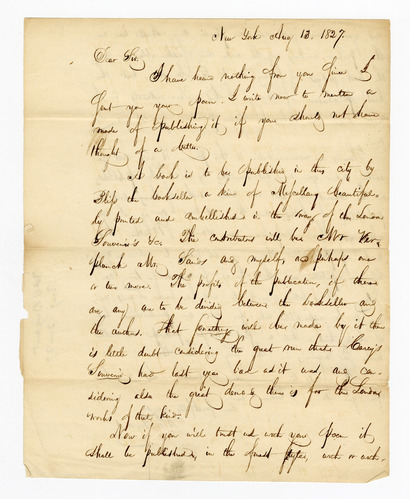 New York Aug 13. 1827.
Dear Sir,
I have heard nothing from you since I
sent you your poem. I write now to mention a
mode of publishing it, if you should not have
thought of a better.
A book is to be published in this city by
Bliss the bookseller a kind of Miscellany beautiful-
ly printed and embellished in the way of the London
Souvenirs &c. The contributors will be Mr Ver-
planck Mr. Sands and myself, and perhaps one
or two more. The profits of the publication, if there
are any are to be divided between the bookseller and
the authors. That something will be made by it there
is little doubt considering the great run that Carey's
Souvenir had last year bad as it was, and con-
sidering also the great demand there is for the London
works of that kind.
Now if you will trust us with your poem it
shall be published, in the finest style, with or with-